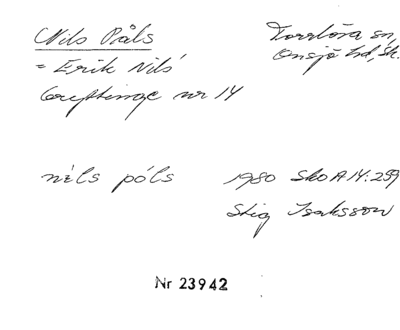 Nils Påls
Torrlösa sn,
= Erik Nils'
Onsjö hd, Sk.
Greftinge nr 14
nils póls
1980 Sko A 14:259
Stig Isaksson
Nr 23942